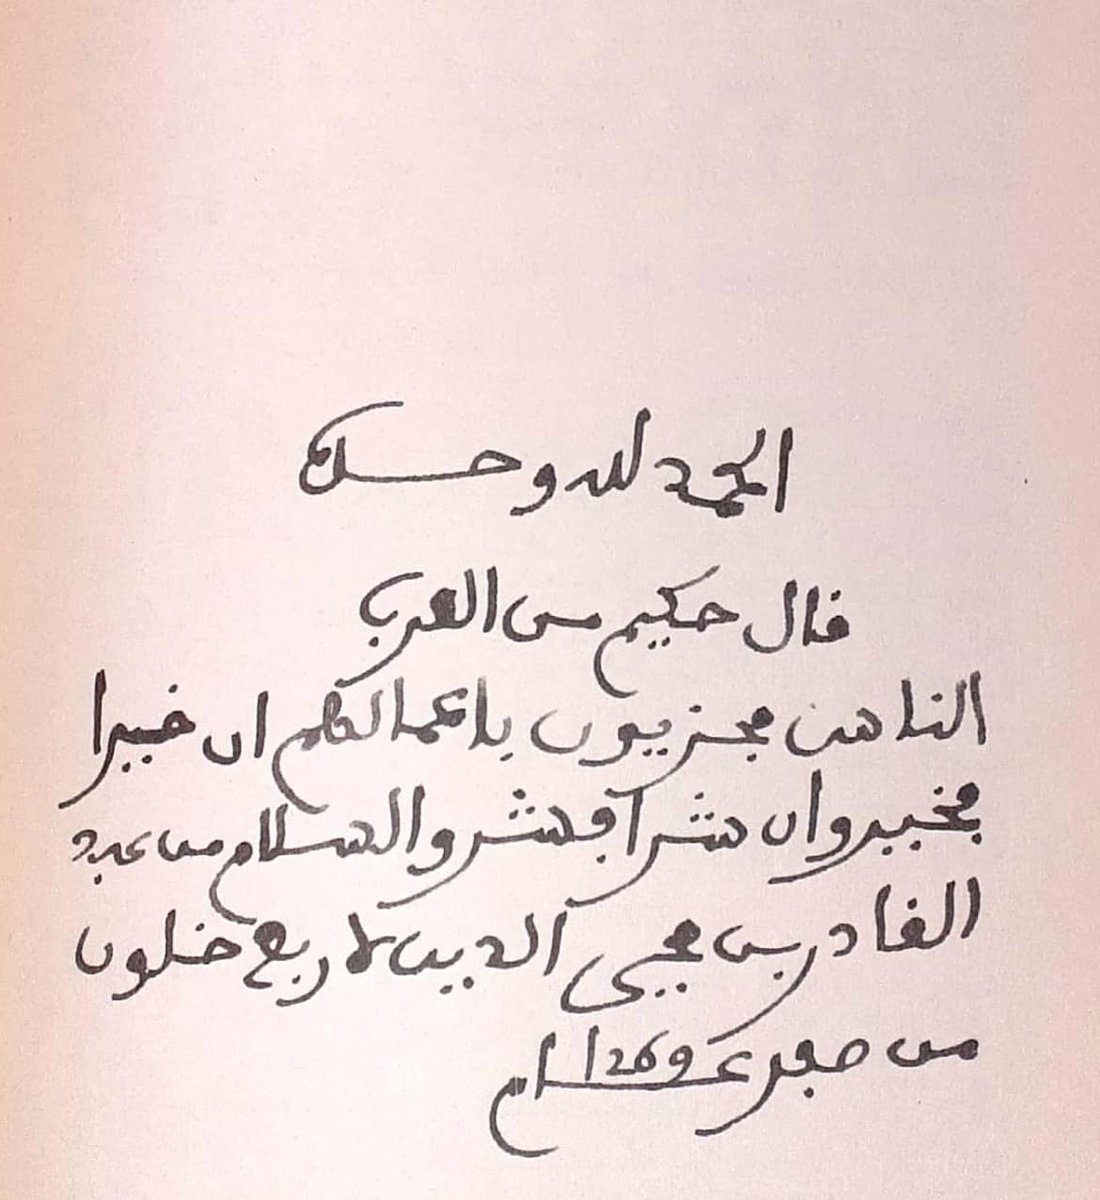 الحمد لله وحده
قال حكيم من العرب
الناس مجزيون باعمالهم ان خيرا
فخير وان شرا فشر والسلام من عبد
القادر بن محيي الدين لاربع خلون
من صفر عام